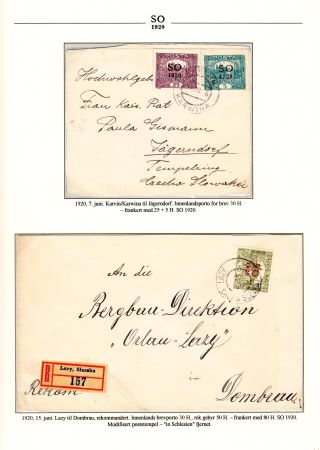 SO
1920
SO
1920
SO
1920
Hochwohlgeb
Frau Kais. Rat
Paula Gismann
Jägerndorf
Tempelring
Czecho Slowakei
KARWINA
1920, 7. juni. Karvin/Karwina til Jägerndorf. Innenlandsporto for brev 30 H.
– frankert med 25 + 5 H. SO 1920.
An die
SO
1920
LAZY
Bergbau-Direktion
"Orlau-Lazy"
Lazy, Slezsko
157
Rekom
Dombrau
1920, 15. juni. Lazy til Dombrau, rekommandert. Innenlands brevporto 30 H., rek.gebyr 50 H. – frankert med 80 H. SO 1920.
Modifisert poststempel – "in Schlesien" fjernet.